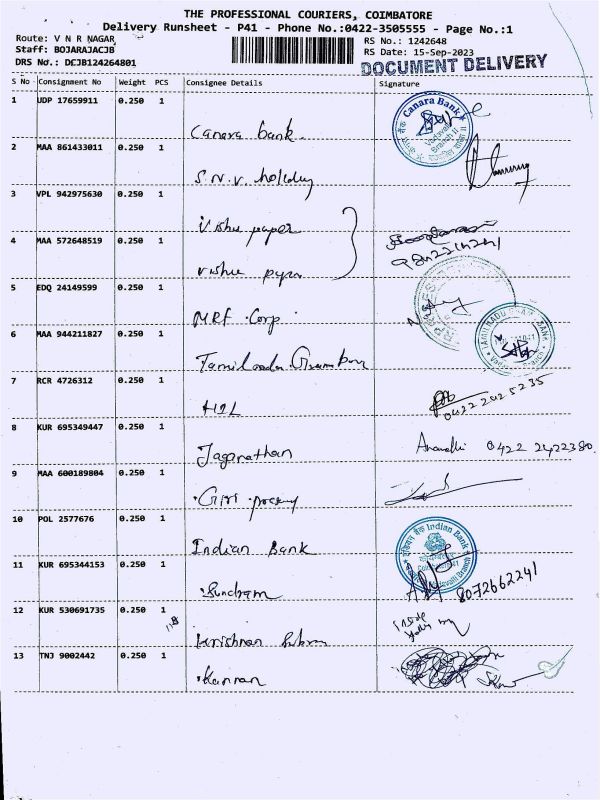 THE PROFESSIONAL COURIERS, COIMBATORE
Delivery Runsheet - P41 - Phone No.:0422-3505555 - Page No.:1
Route: V N R NAGAR
Staff: BOJARAJACJB
DRS No.: DCJB124264801
RS No.: 1242648
RS Date: 15-Sep-2023
DOCUMENT DELIVERY
S No Consignment No Weight PCS Consignee Details Signature
1 UDP 17659911 0.250 1
Canara bank
Canara Bank
Branch II
2 MAA 861433011 0.250 1
S.N.V. holiday
3 VPL 942975630 0.250 1
Vishu paper
4 MAA 572648519 0.250 1
Vishu
5 EDQ 24149599 0.250 1
MRF Corp
6 MAA 944211827 0.250 1
Tamilnadu
TAMILNADU
7 RCR 4726312 0.250 1
0422 2425235
8 KUR 695349447 0.250 1
Jaganathan
0422 2422380
9 MAA 600189804 0.250 1
Giri
10 POL 2577676 0.250 1
Indian Bank
Indian Bank
11 KUR 695344153 0.250 1
Sundram
8072662241
12 KUR 530691735 0.250 1
Krishnan
13 TNJ 9002442 0.250 1
Kannan